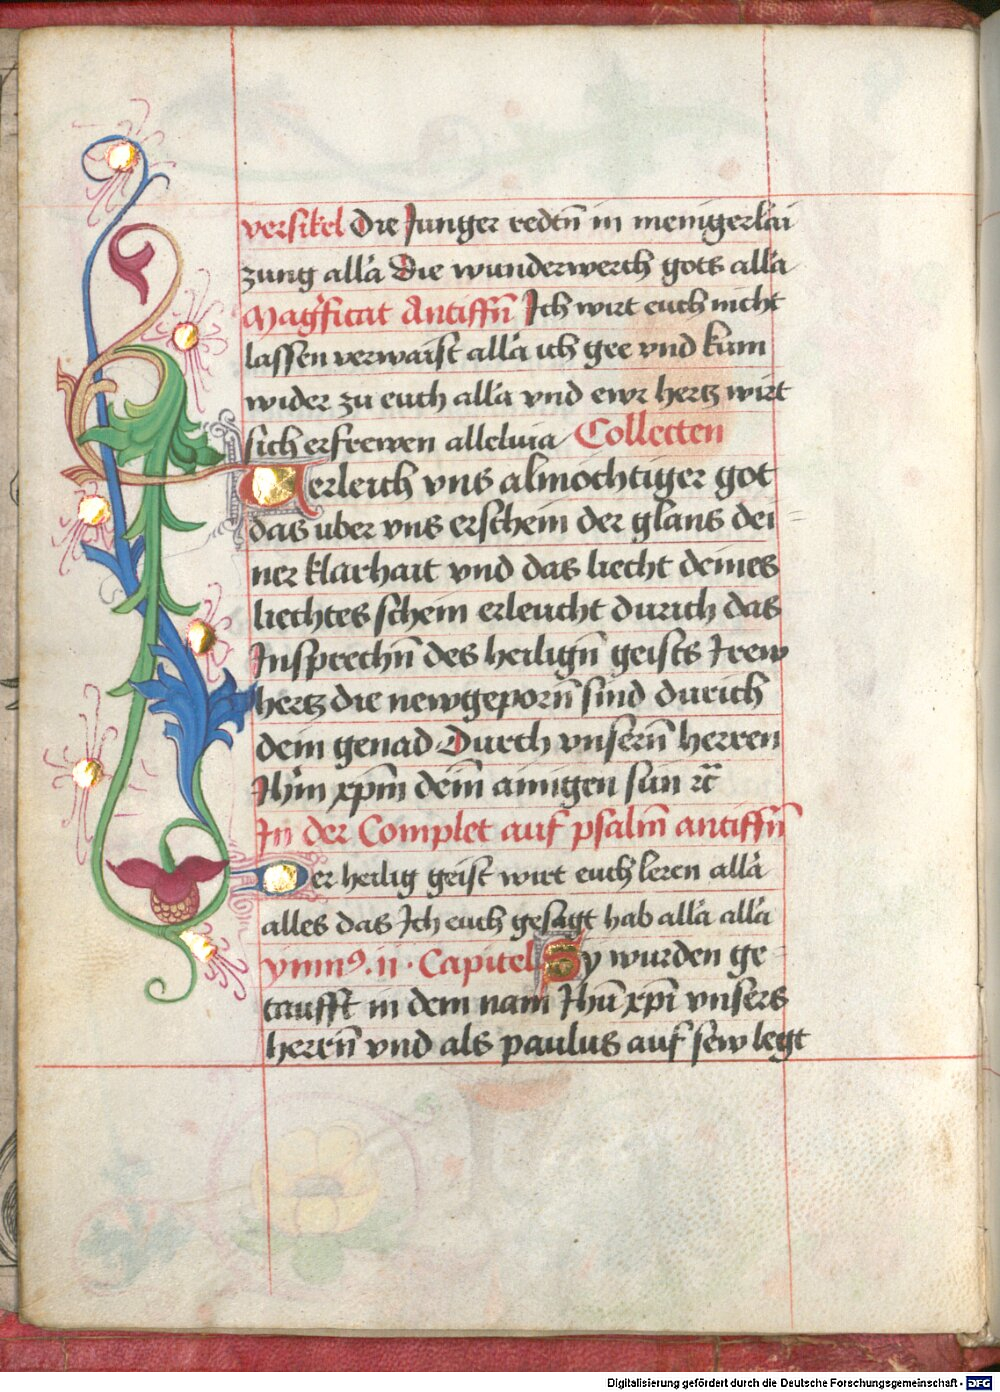 versikel Die Junger redtn̄ in menigerlai
zung all'a Die wunderwerch gots all'a
Magn̄ficat Antiffn̄ Ich wirt euch nicht
lassen verwaist all'a ich gee vnd kum
wider zu euch all'a vnd ewr hertz wirt
sich erfrewen alleluia Collecten
Verleich vns almöchtiger got
das uber vns erschein der glans dei=
ner klarhait vnd das liecht deines
liechtes schein erleucht durich das
Insprechn̄ des heilign̄ geists Irew
hertz die newgeporn̄ sind durich
dein genad Durch vnsern̄ herren
Ihm̄ xpm̄ dein̄ ainigen sun rc̄
In der Complet auf psalm̄ antiffn̄
Der heilig geist wirt euch leren all'a
alles das Ich euch gesagt hab all'a all'a
ymnꝰ. ii · Capitel Sy wurden ge-
taufft in dem nam Ihū xpī vnsers
herrn̄ vnd als paulus auf sew legt
Digitalisierung gefördert durch die Deutsche Forschungsgemeinschaft - DFG